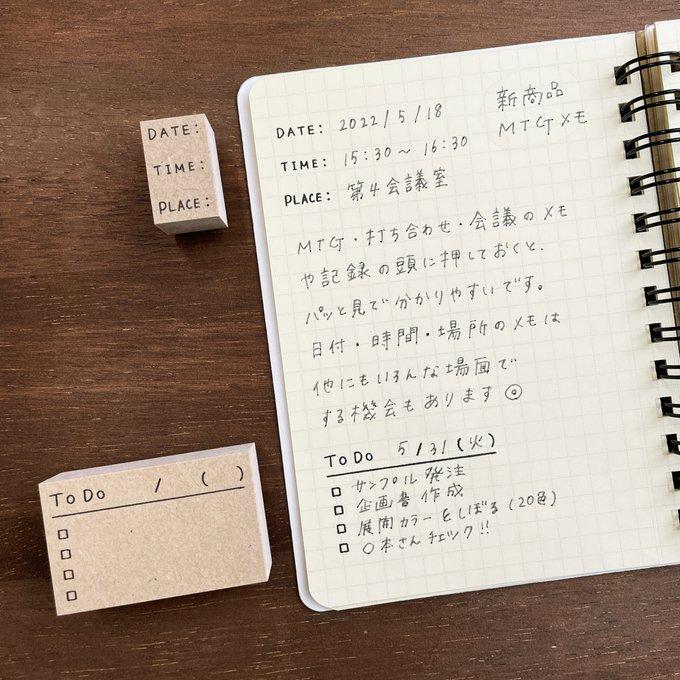 DATE:
TIME:
PLACE:
ToDo / ( )
DATE: 2022/5/18
新商品
MTGメモ
TIME: 15:30〜16:30
PLACE: 第4会議室
MTG・打ち合わせ・会議のメモ
や記録の頭に押しておくと、
パッと見で分かりやすいです。
日付・時間・場所のメモは
他にもいろんな場面で
する機会もあります◎
ToDo 5/31(火)
□ サンプル発注
□ 企画書作成
□ 展開カラーをしぼる(20色)
□ ○本さんチェック!!